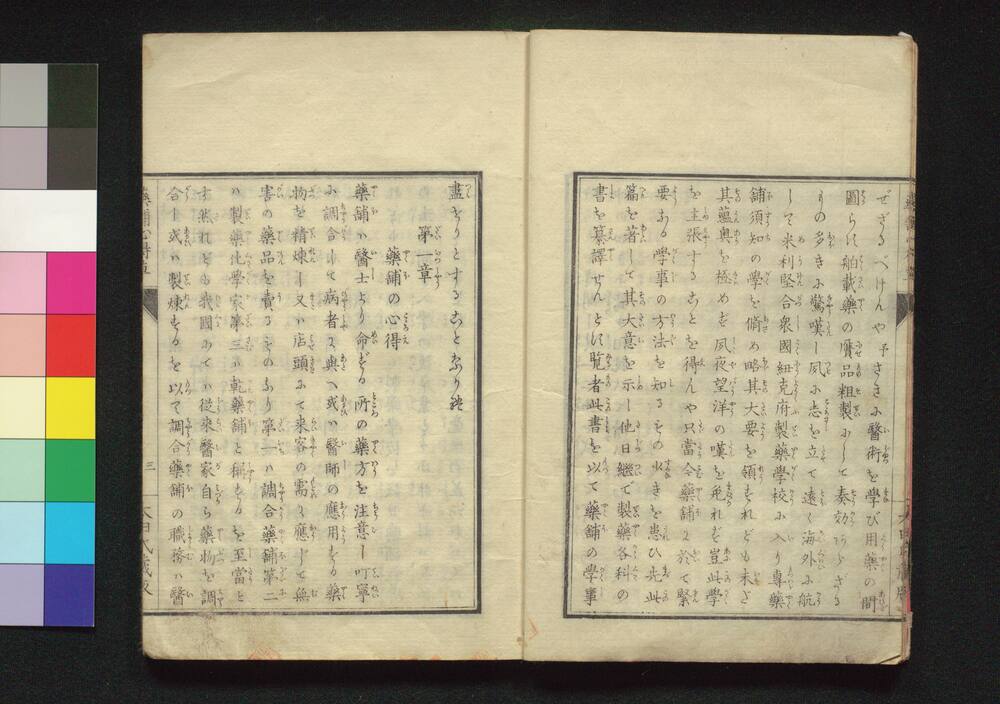 ぜざるべけんや予さきに醫術を學び用藥の間
圖らず舶載藥の贋品粗製にして奏効あらざる
もの多きに驚嘆し夙に志を立て遠く海外に航
して米利堅合衆國紐克府製藥學校に入り專藥
舖須知の學を脩め略其大要を領すれども未だ
其蘊奥を極めず夙夜望洋の嘆を免れず豈此學
を主張することを得んや只當今藥舖に於て緊
要ある學事の方法を知るもの少きを患ひ先此
篇を著して其大意を示し他日繼で製藥各科の
書を纂譯せんとす覧者此書を以て藥舖の學事
盡せりとすることなり
第一章
藥舖の心得
藥舖ハ醫士より命ずる所の藥方を注意し叮寧
に調合して病者に與へ或ハ醫師の應用する藥
物を精煉し又ハ店頭にて來客の需に應じて無
害の藥品を賣るものなり第一ハ調合藥舖第二
ハ製藥化學家第三ハ乾藥舖と稱するを至當と
す然れども我國にてハ從來醫家自ら藥物を調
合し或ハ製煉するを以て調合藥舖の職務ハ醫
三